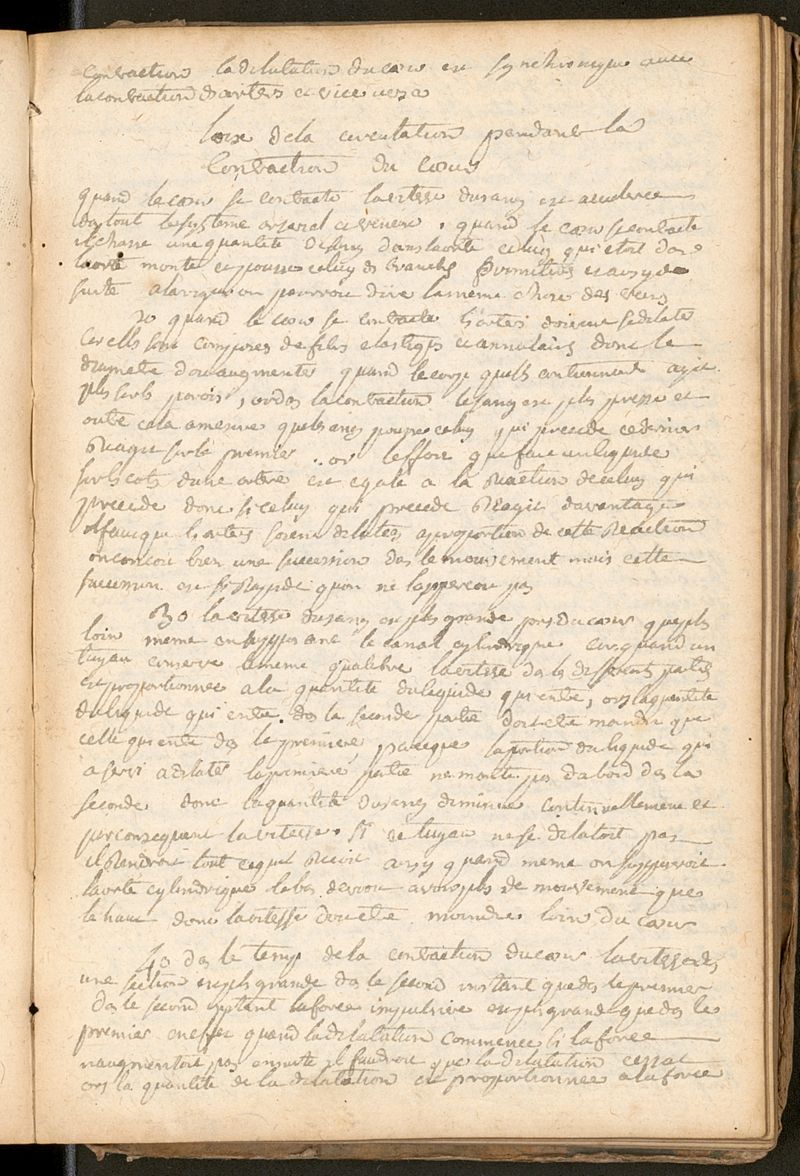 contraction la dilatation du coeur est synchronique avec
la contraction darteres et vice versa
loix de la circulation pendant la
contraction du coeur
quand le coeur se contracte la vitesse du sang est acceleree
ds tout le systeme arterial et veneux, quand le coeur se contracte
il chasse une quantite de sang dans laorte celuy qui etoit ds
laorte monte et pousse celuy ds branches primitives et ainsy de
suite a la rigueur on pourroit dire la meme chose des veines
2o quand le coeur se contracte ls arteres doivent se dilater
car elles sont composees de fibres elastiqs et annulaires donc le
diametre doit augmenter quand le corps quells contiennent agit
pls sur ls parois, or ds la contraction le sang est pls presse et
outre cela a mesure que le sang pousse celuy qui precede ce dernier
reagit sur le premier or leffort que fait un liquide
sur ls cots dune artere est egale a la reaction de celuy qui
precede donc si celuy qui precede reagit davantage
il faut que ls arteres soient dilatees a proportion de cette reaction
on concoit bien une succession ds le mouvement mais cette
succession est si rapide quon ne lappercoit pas
3o la vitesse du sang est pls grande pres du coeur que pls
loin meme en supposant le canal cylindrique car quand un
tuyau conserve le meme qualibre la vitesse ds ls differents parties
est proportionnee a la quantite du liquide qui entre, or la quantite
du liquide qui entre ds la seconde partie doit etre moindre que
celle qui entre ds la premiere, parceque la portion du liquide qui
a servi a dilater la premiere partie ne monte pas dabord ds la
seconde donc la quantite du sang diminue continuellement et
par consequent la vitesse. Si le tuyau ne se dilatoit pas
il rendroit tout ce quil recoit ainsy quand meme on supposeroit
laorte cylindrique le bas devroit avoir pls de mouvement que
le haut donc la vitesse doit etre moindre loin du coeur
4o ds le temps de la contraction du coeur la vitesse ds
une section est pls grande ds le second instant que ds le premier
ds le second instant la force impulsive est pls grande que ds le
premier en effet quand la dilatation commence si la force
naugmentoit pas ensuite il faudroit que la dilatation cessat
ors la quantite de la dilatation est proportionnee a la force